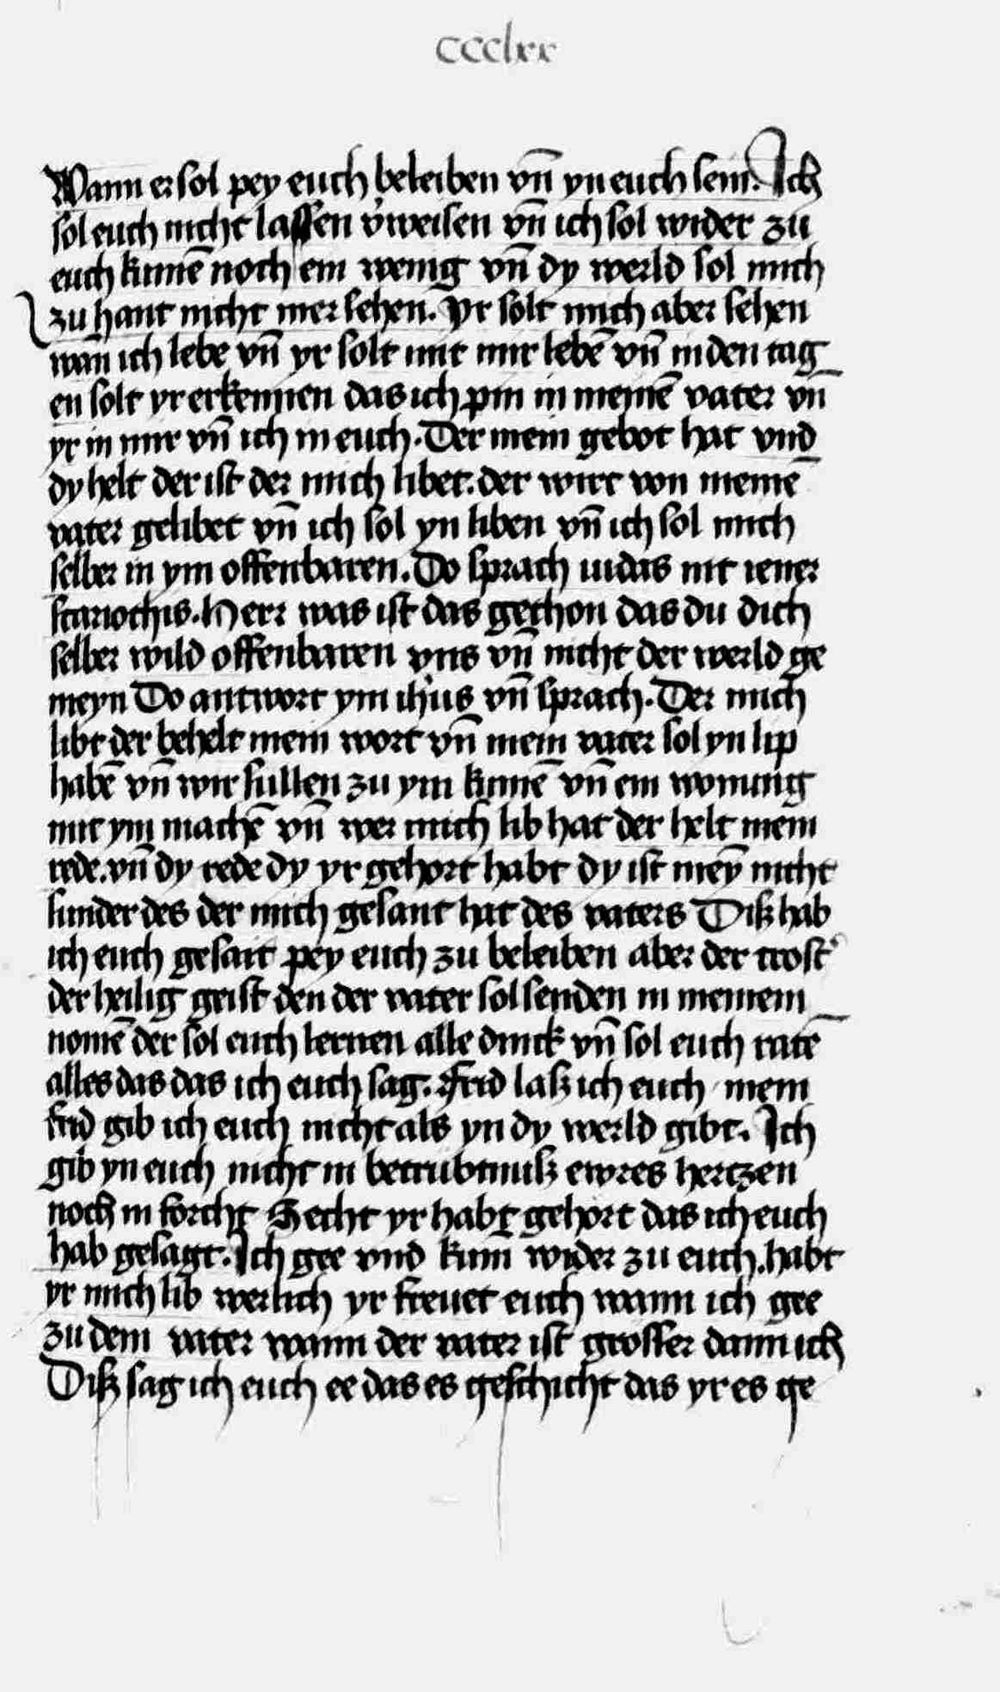 ccclxx
Wann er sol pey euch beleiben vn̄ yn euch sein. Ich
sol euch nicht lassen v'weisen vn̄ ich sol wider zu
euch kumē noch ein wenig vn̄ dy werld sol mich
zu hant nicht mer sehen. Yr solt mich aber sehen
wan̄ ich lebe vn̄ yr solt mit mir lebē vn̄ in den tag
en solt yr erkennen das ich pin in meinē vater vn̄
yr in mir vn̄ ich in euch. Der mein gebot hat vnd
dy helt der ist der mich libet. der wirt von meinē
vater gelibet vn̄ ich sol yn liben vn̄ ich sol mich
selber in ym offenbaren. Do sprach iudas nit iener
scariothis. Herr was ist das gethon das du dich
selber wild offenbaren vns vn̄ nicht der werld ge
meyn Do antwort ym ih'us vn̄ sprach. Der mich
libt der behelt mein wort vn̄ mein vater sol yn lip
habē vn̄ wir sullen zu ym kumē vn̄ ein wonung
mit ym machē vn̄ wer mich lib hat der helt mein
rede. vn̄ dy rede dy yr gehort habt dy ist mey̅ nicht
sunder des der mich gesant hat des vaters Disz hab
ich euch gesait pey euch zu beleiben aber der trost'
der heilig geist den der vater sol senden in meinem
nomē der sol euch lernen alle dinck vn̄ sol euch ratē
alles das das ich euch sag. Frid lasz ich euch mein
frid gib ich euch nicht als yn dy werld gibt. Ich
gib yn euch nicht in betrubtnusz ewres hertzen
noch in forcht Secht yr habt gehort das ich euch
hab gesagt. Ich gee vnd kum̄ wider zu euch. habt
yr mich lib werlich yr freuet euch wann ich gee
zu dem vater wann der vater ist grosser dann ich
Disz sag ich euch ee das es geschicht das yr es ge